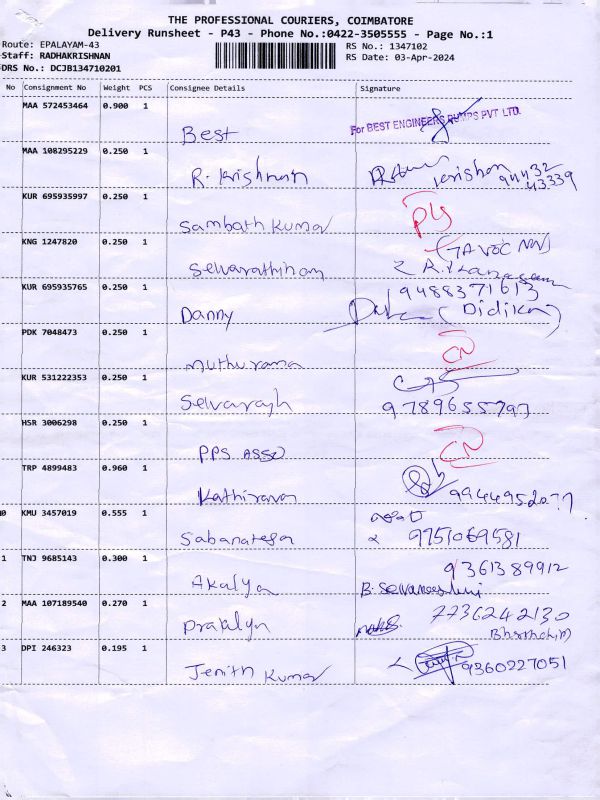 THE PROFESSIONAL COURIERS, COIMBATORE
Delivery Runsheet - P43 - Phone No.:0422-3505555 - Page No.:1
Route: EPALAYAM-43 RS No.: 1347102
Staff: RADHAKRISHNAN RS Date: 03-Apr-2024
DRS No.: DCJB134710201
No Consignment No Weight PCS Consignee Details Signature
MAA 572453464 0.900 1
Best For BEST ENGINEERS PUMPS PVT LTD.
MAA 108295229 0.250 1
R. Krishnan Krishan 94432
43339
KUR 695935997 0.250 1
Sambath Kumar
KNG 1247820 0.250 1
Selvarathinam
KUR 695935765 0.250 1 9488371613
Danny (Didika)
PDK 7048473 0.250 1
muthurama CN
KUR 531222353 0.250 1
Selvaragh 9789655797
HSR 3006298 0.250 1
PPS ASSO CN
TRP 4899483 0.960 1
Kathiravan
0 KMU 3457019 0.555 1
Sabanatesan 9751069581
1 TNJ 9685143 0.300 1 9361389912
Akalya B.
2 MAA 107189540 0.270 1 7736242130
Prakalya
3 DPI 246323 0.195 1
Jenith Kumar 9360227051